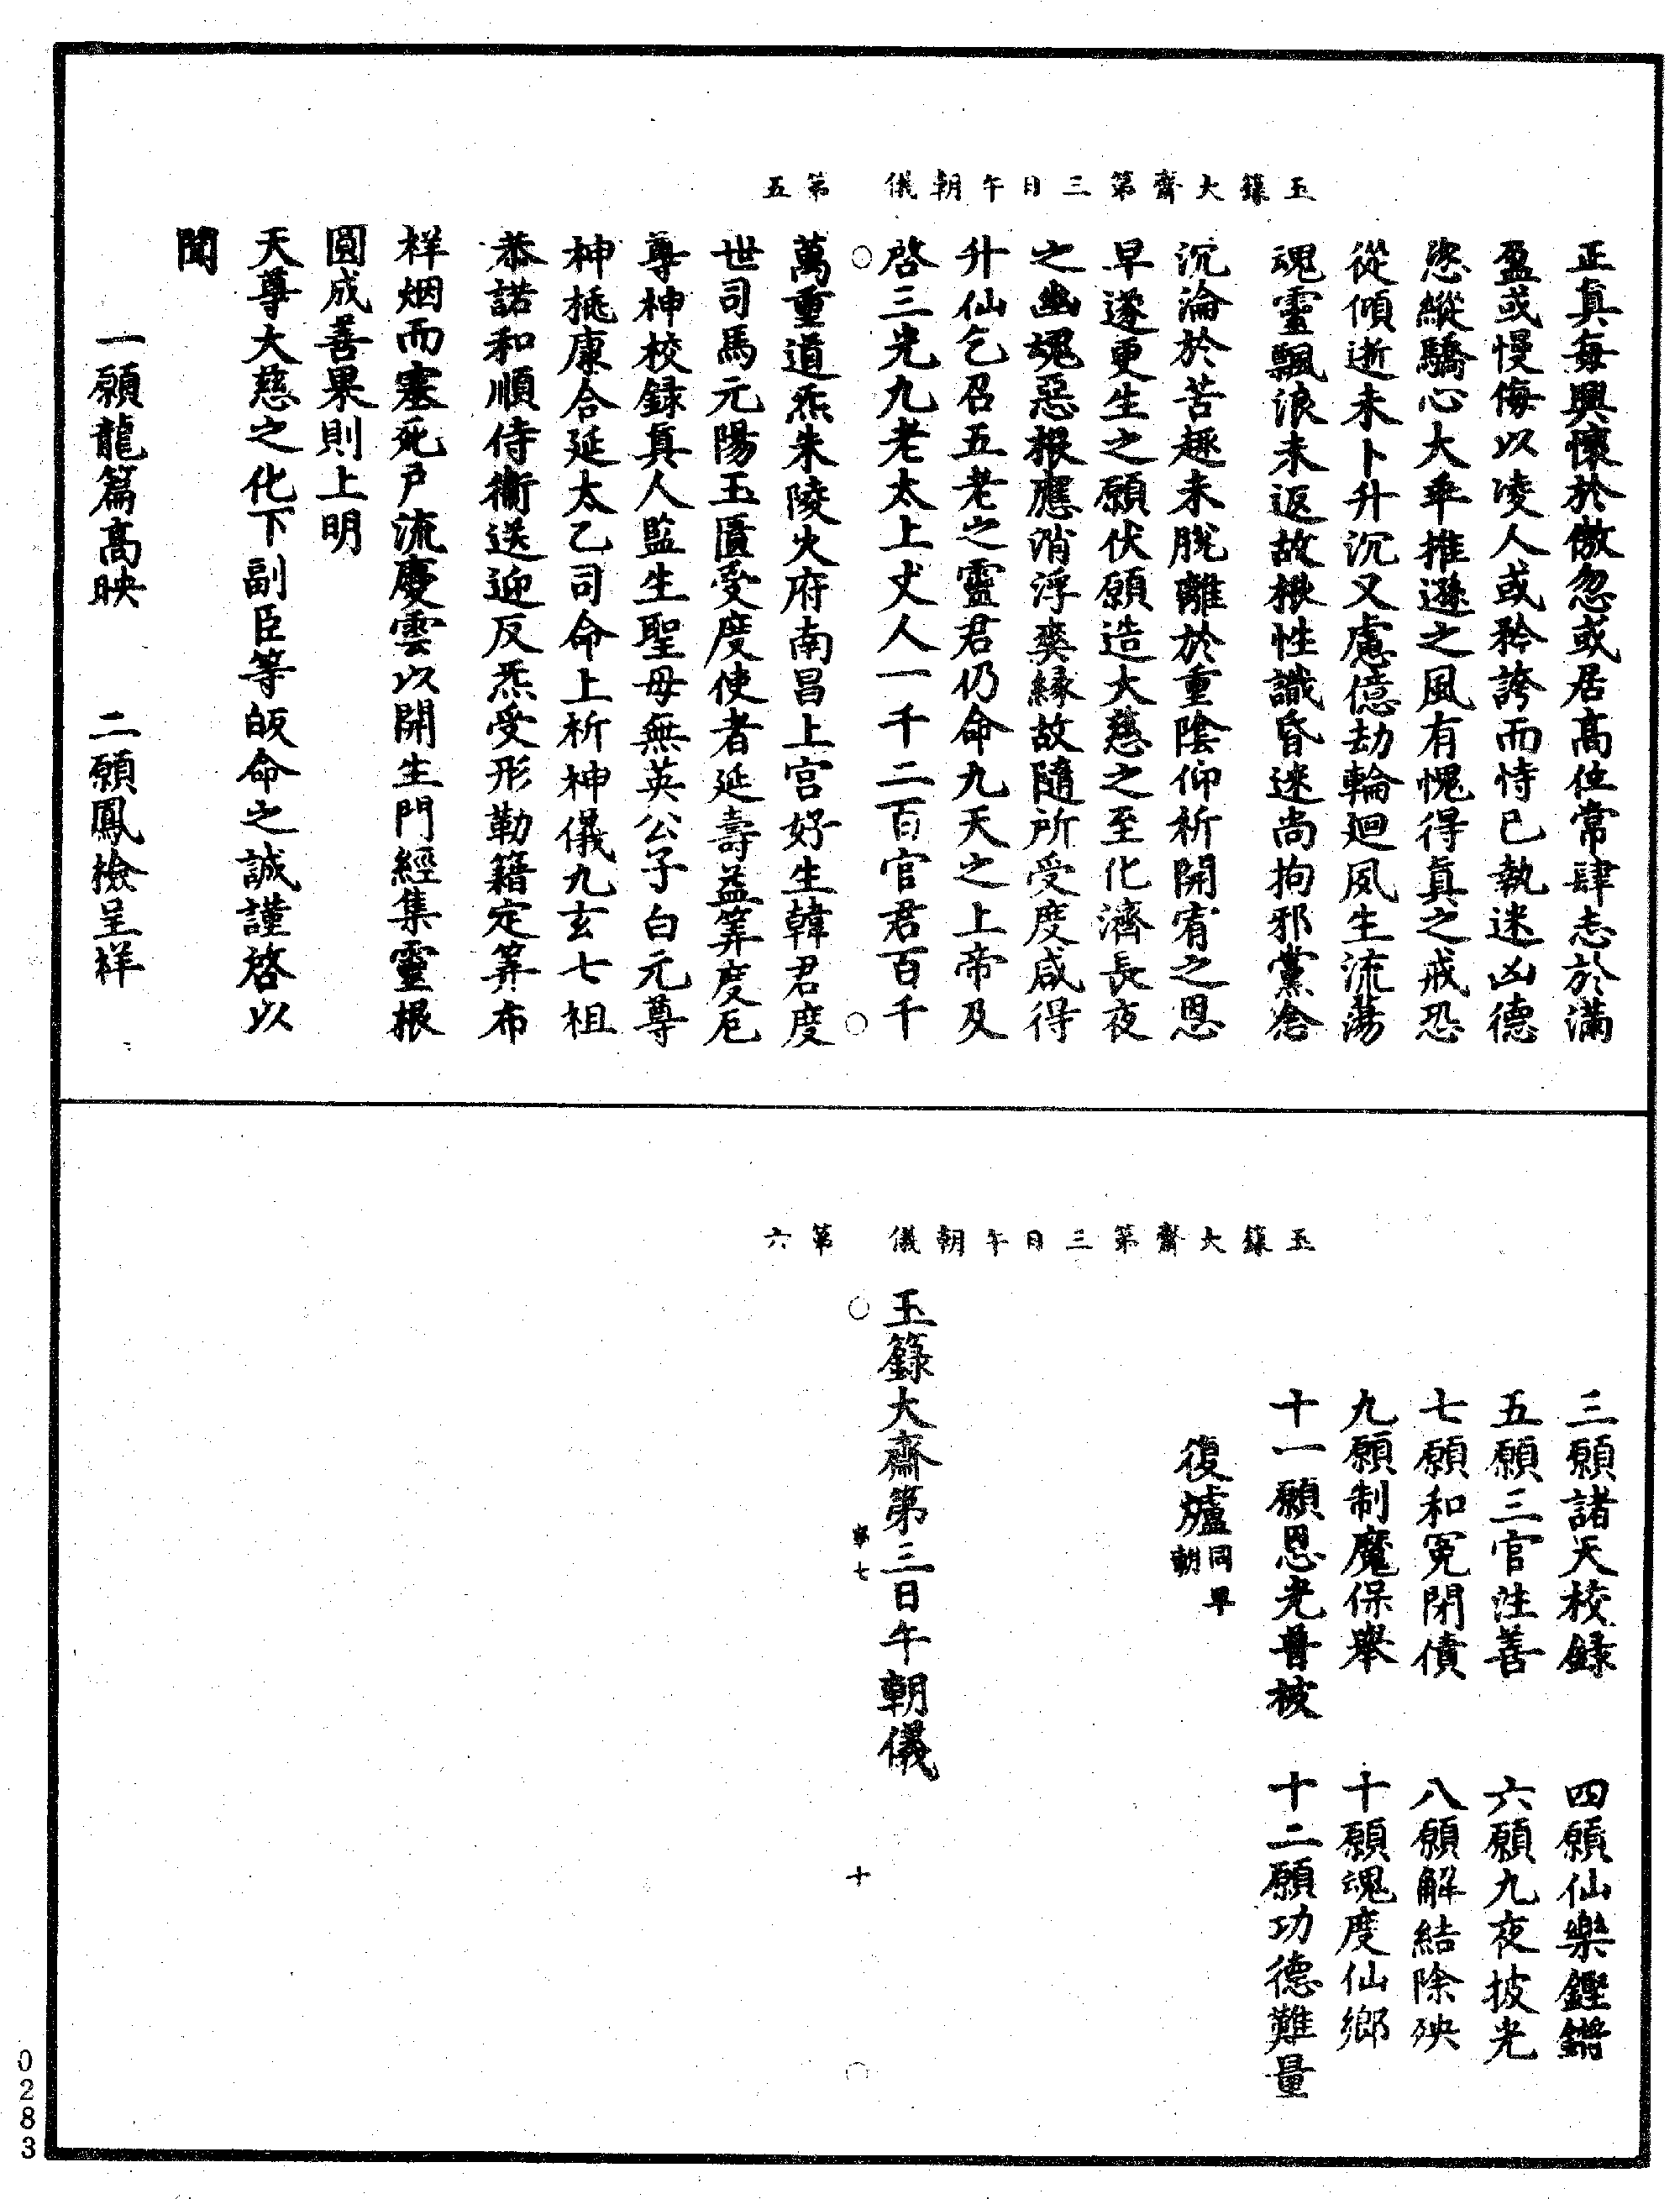 玉籙大齋第三日午朝儀　第五
正真每興懷於傲忽或居高位常肆志於滿
盈或慢侮以凌人或矜誇而恃已執迷凶德
恣縱驕心大乖推遜之風有愧得真之戒恐
從傾逝未卜升沉又慮億劫輪廻夙生流蕩
魂靈飄浪未返故楸性識昏迷尚拘邪黨倉
沉淪於苦趣未脫離於重陰仰祈開宥之恩
早遂更生之願伏願造大慈之至化濟長夜
之幽魂惡根應消浮爽緣故隨所受度咸得
升仙乞召五老之靈君仍命九天之上帝及
啓三光九老太上丈人一千二百官君百千
萬重道炁朱陵火府南昌上宮好生韓君度
世司馬元陽玉匱受度使者延壽益筭度厄
尊神校録真人監生聖母無英公子白元尊
神桃康合延太乙司命上祈神儀九玄七祖
恭諾和順侍衛送迎反炁受形勒籍定筭布
祥烟而塞死戶流慶雲以開生門經集靈根
圓成善果則上明
天尊大慈之化下副臣等皈命之誠謹啓以
聞
一願龍篇高映　二願鳳檢呈祥
玉籙大齋第三日午朝儀　第六
三願諸天校録　四願仙樂鏗鏘
五願三官注善　六願九夜披光
七願和冤閉債　八願解結除殃
九願制魔保舉　十願魂度仙鄉
十一願恩光普被　十二願功德難量
復爐同早朝
玉籙大齋第三日午朝儀
第七　十
0283